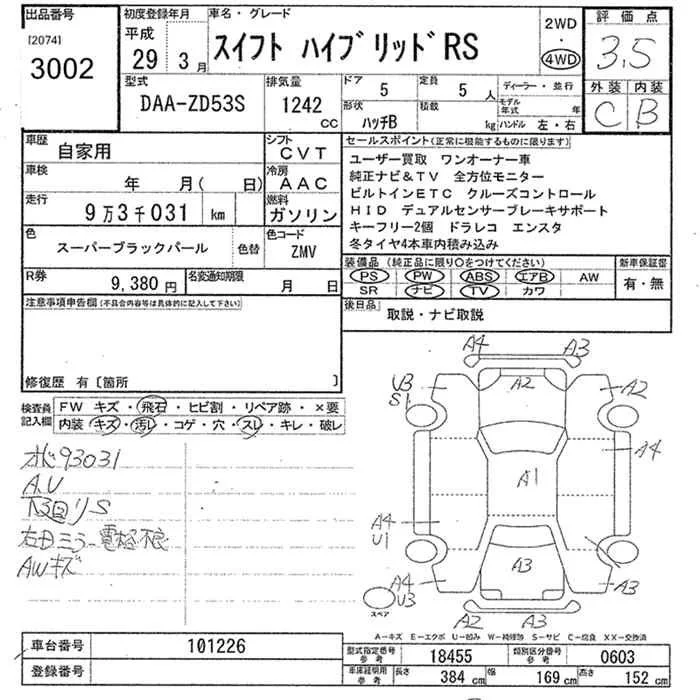 出品番号
[2074]
3002
初度登録年月
平成
29 年 3 月
車名・グレード
スイフト ハイブリッドRS
2WD
・
4WD
評価点
3.5
外装 内装
C B
型式
DAA-ZD53S
排気量
1242
CC
ドア
5
定員
5 人
形状
ハッチB
積載
kg
ディーラー・並行
モデル年式 年
ハンドル 左・右
車歴
自家用
シフト
CVT
車検
年 月( 日)
冷房
AAC
走行
9万3千031 km
燃料
ガソリン
色
スーパーブラックパール
色替
色コード
ZMV
R券
9,380 円
名変通知期限
月 日
セールスポイント(正常に機能するものに限ります)
ユーザー買取 ワンオーナー車
純正ナビ&TV 全方位モニター
ビルトインETC クルーズコントロール
HID デュアルセンサーブレーキサポート
キーフリー2個 ドラレコ エンスタ
冬タイヤ4本車内積み込み
装備品(純正品に限り○をつけてください)
PS PW ABS エアB AW
SR ナビ TV カワ
新車保証書
有・無
後日品
取説・ナビ取説
注意事項申告欄(不具合内容等は具体的に記入して下さい)
修復歴 有 [箇所 ]
検査員記入欄
FW キズ・飛石・ヒビ割・リペア跡・×要
内装・キズ・汚レ・コゲ・穴・スレ・キレ・破レ
93031
A.U
下回りS
右ドミラー電格不良
AWキズ
A4 A3
U3
S1
A2 A2
A4
A1
A4
U1
A3
A4
U3
A3
A2 A3
スペア
A－キズ E－エクボ U－凹み W－補修跡 S－サビ C－腐食 XX－交換済
車台番号
101226
登録番号
型式指定番号
参考
18455
類別区分番号
参考
0603
車庫証明用
参考
長さ 384 cm 幅 169 cm 高さ 152 cm